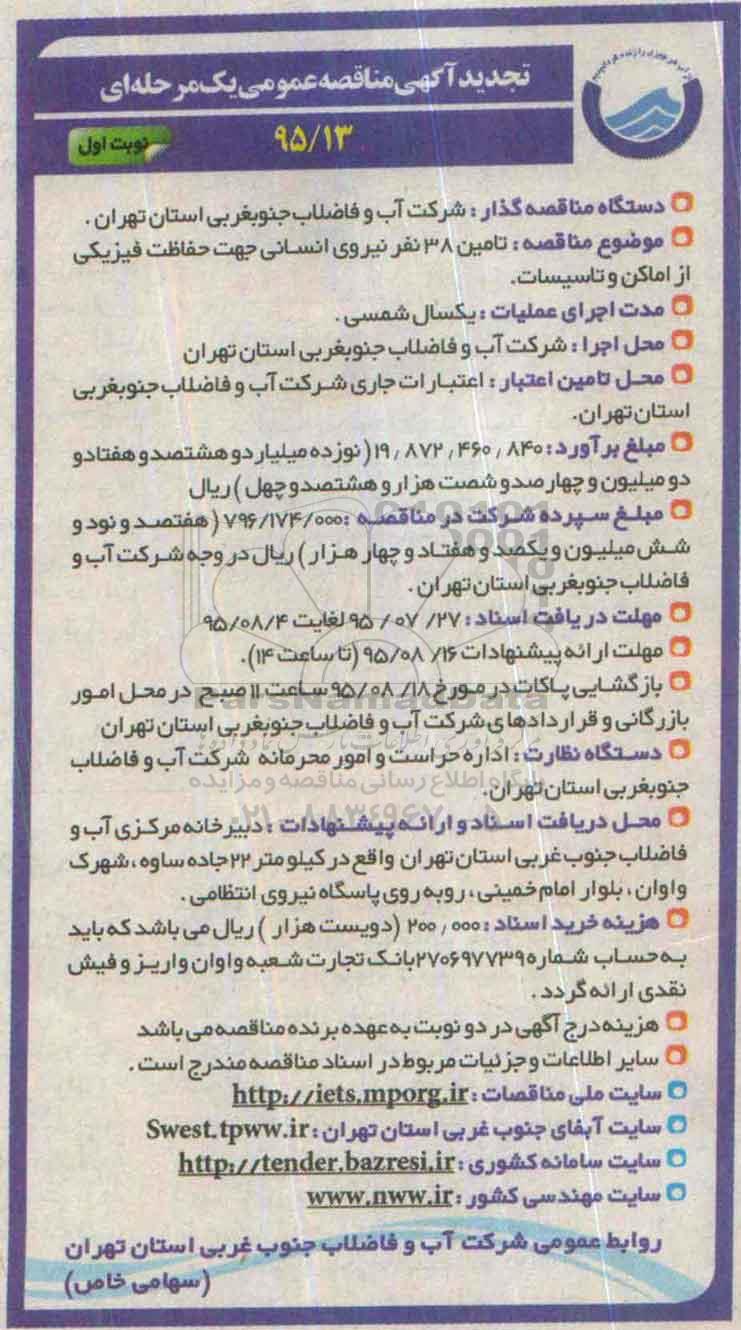 تجدید آگهی مناقصه عمومی یک مرحله‌ای
۹۵/۱۳
نوبت اول
دستگاه مناقصه گذار : شرکت آب و فاضلاب جنوبغربی استان تهران .
موضوع مناقصه : تامین ۳۸ نفر نیروی انسانی جهت حفاظت فیزیکی
از اماکن و تاسیسات.
مدت اجرای عملیات : یکسال شمسی .
محل اجرا : شرکت آب و فاضلاب جنوبغربی استان تهران
محل تامین اعتبار : اعتبارات جاری شرکت آب و فاضلاب جنوبغربی
استان تهران.
مبلغ برآورد : ۱۹٫۸۷۲٫۴۶۰٫۸۴۰ ( نوزده میلیارد و هشتصد و هفتاد و
دو میلیون و چهارصد و شصت هزار و هشتصد و چهل ) ریال
مبلغ سپرده شرکت در مناقصه : ۷۹۶/۱۷۴/۰۰۰ ( هفتصد و نود و
شش میلیون و یکصد و هفتاد و چهار هزار ) ریال در وجه شرکت آب و
فاضلاب جنوبغربی استان تهران .
مهلت دریافت اسناد : ۲۷/ ۰۷/ ۹۵ لغایت ۹۵/۰۸/۴
مهلت ارائه پیشنهادات ۱۶/ ۹۵/۰۸ (تا ساعت ۱۴).
بازگشایی پاکات در مورخ ۱۸/ ۰۸/ ۹۵ ساعت ۱۱ صبح در محل امور
بازرگانی و قراردادهای شرکت آب و فاضلاب جنوبغربی استان تهران
دستگاه نظارت : اداره حراست و امور محرمانه شرکت آب و فاضلاب
جنوبغربی استان تهران.
محل دریافت اسناد و ارائه پیشنهادات : دبیرخانه مرکزی آب و
فاضلاب جنوب غربی استان تهران واقع در کیلومتر ۲۲ جاده ساوه ، شهرک
واوان ، بلوار امام خمینی ، روبه روی پاسگاه نیروی انتظامی .
هزینه خرید اسناد : ۲۰۰٫۰۰۰ (دویست هزار ) ریال می باشد که باید
به حساب شماره ۲۷۰۶۹۷۷۳۹ بانک تجارت شعبه واوان واریز و فیش
نقدی ارائه گردد .
هزینه درج آگهی در دو نوبت به عهده برنده مناقصه می باشد
سایر اطلاعات و جزئیات مربوط در اسناد مناقصه مندرج است .
سایت ملی مناقصات : http://iets.mporg.ir
سایت آبفای جنوب غربی استان تهران : Swest.tpww.ir
سایت سامانه کشوری : http://tender.bazresi.ir
سایت مهندسی کشور : www.nww.ir
روابط عمومی شرکت آب و فاضلاب جنوب غربی استان تهران
(سهامی خاص)
ParsNamadData
پایگاه اطلاع رسانی مناقصه و مزایده